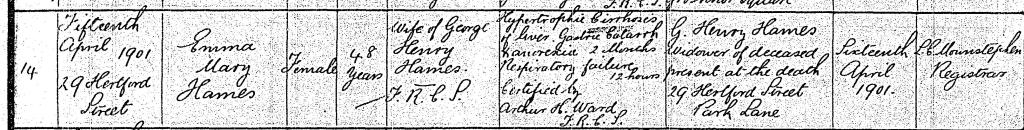 14
Fifteenth
April 1901
29 Hertford
Street
Emma
Mary
Hames
Female
48
Years
Wife of George
Henry
Hames.
F.R.C.S.
Hypertrophic Cirrhosis
of Liver. Gastric Catarrh
& anorexia 2 Months
Respiratory failure
12 hours
Certified by
Arthur H. Ward
F.R.C.S.
G. Henry Hames
Widower of deceased
present at the death
29 Hertford Street
Park Lane
Sixteenth
April
1901.
Registrar